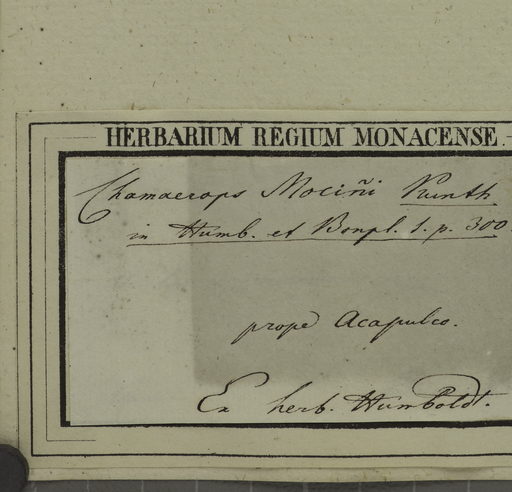 HERBARIUM REGIUM MONACENSE.
Chamaerops Mociñi Kunth
in Humb. et Bonpl. 1. p. 300.
prope Acapulco.
Ex herb. Humboldt.